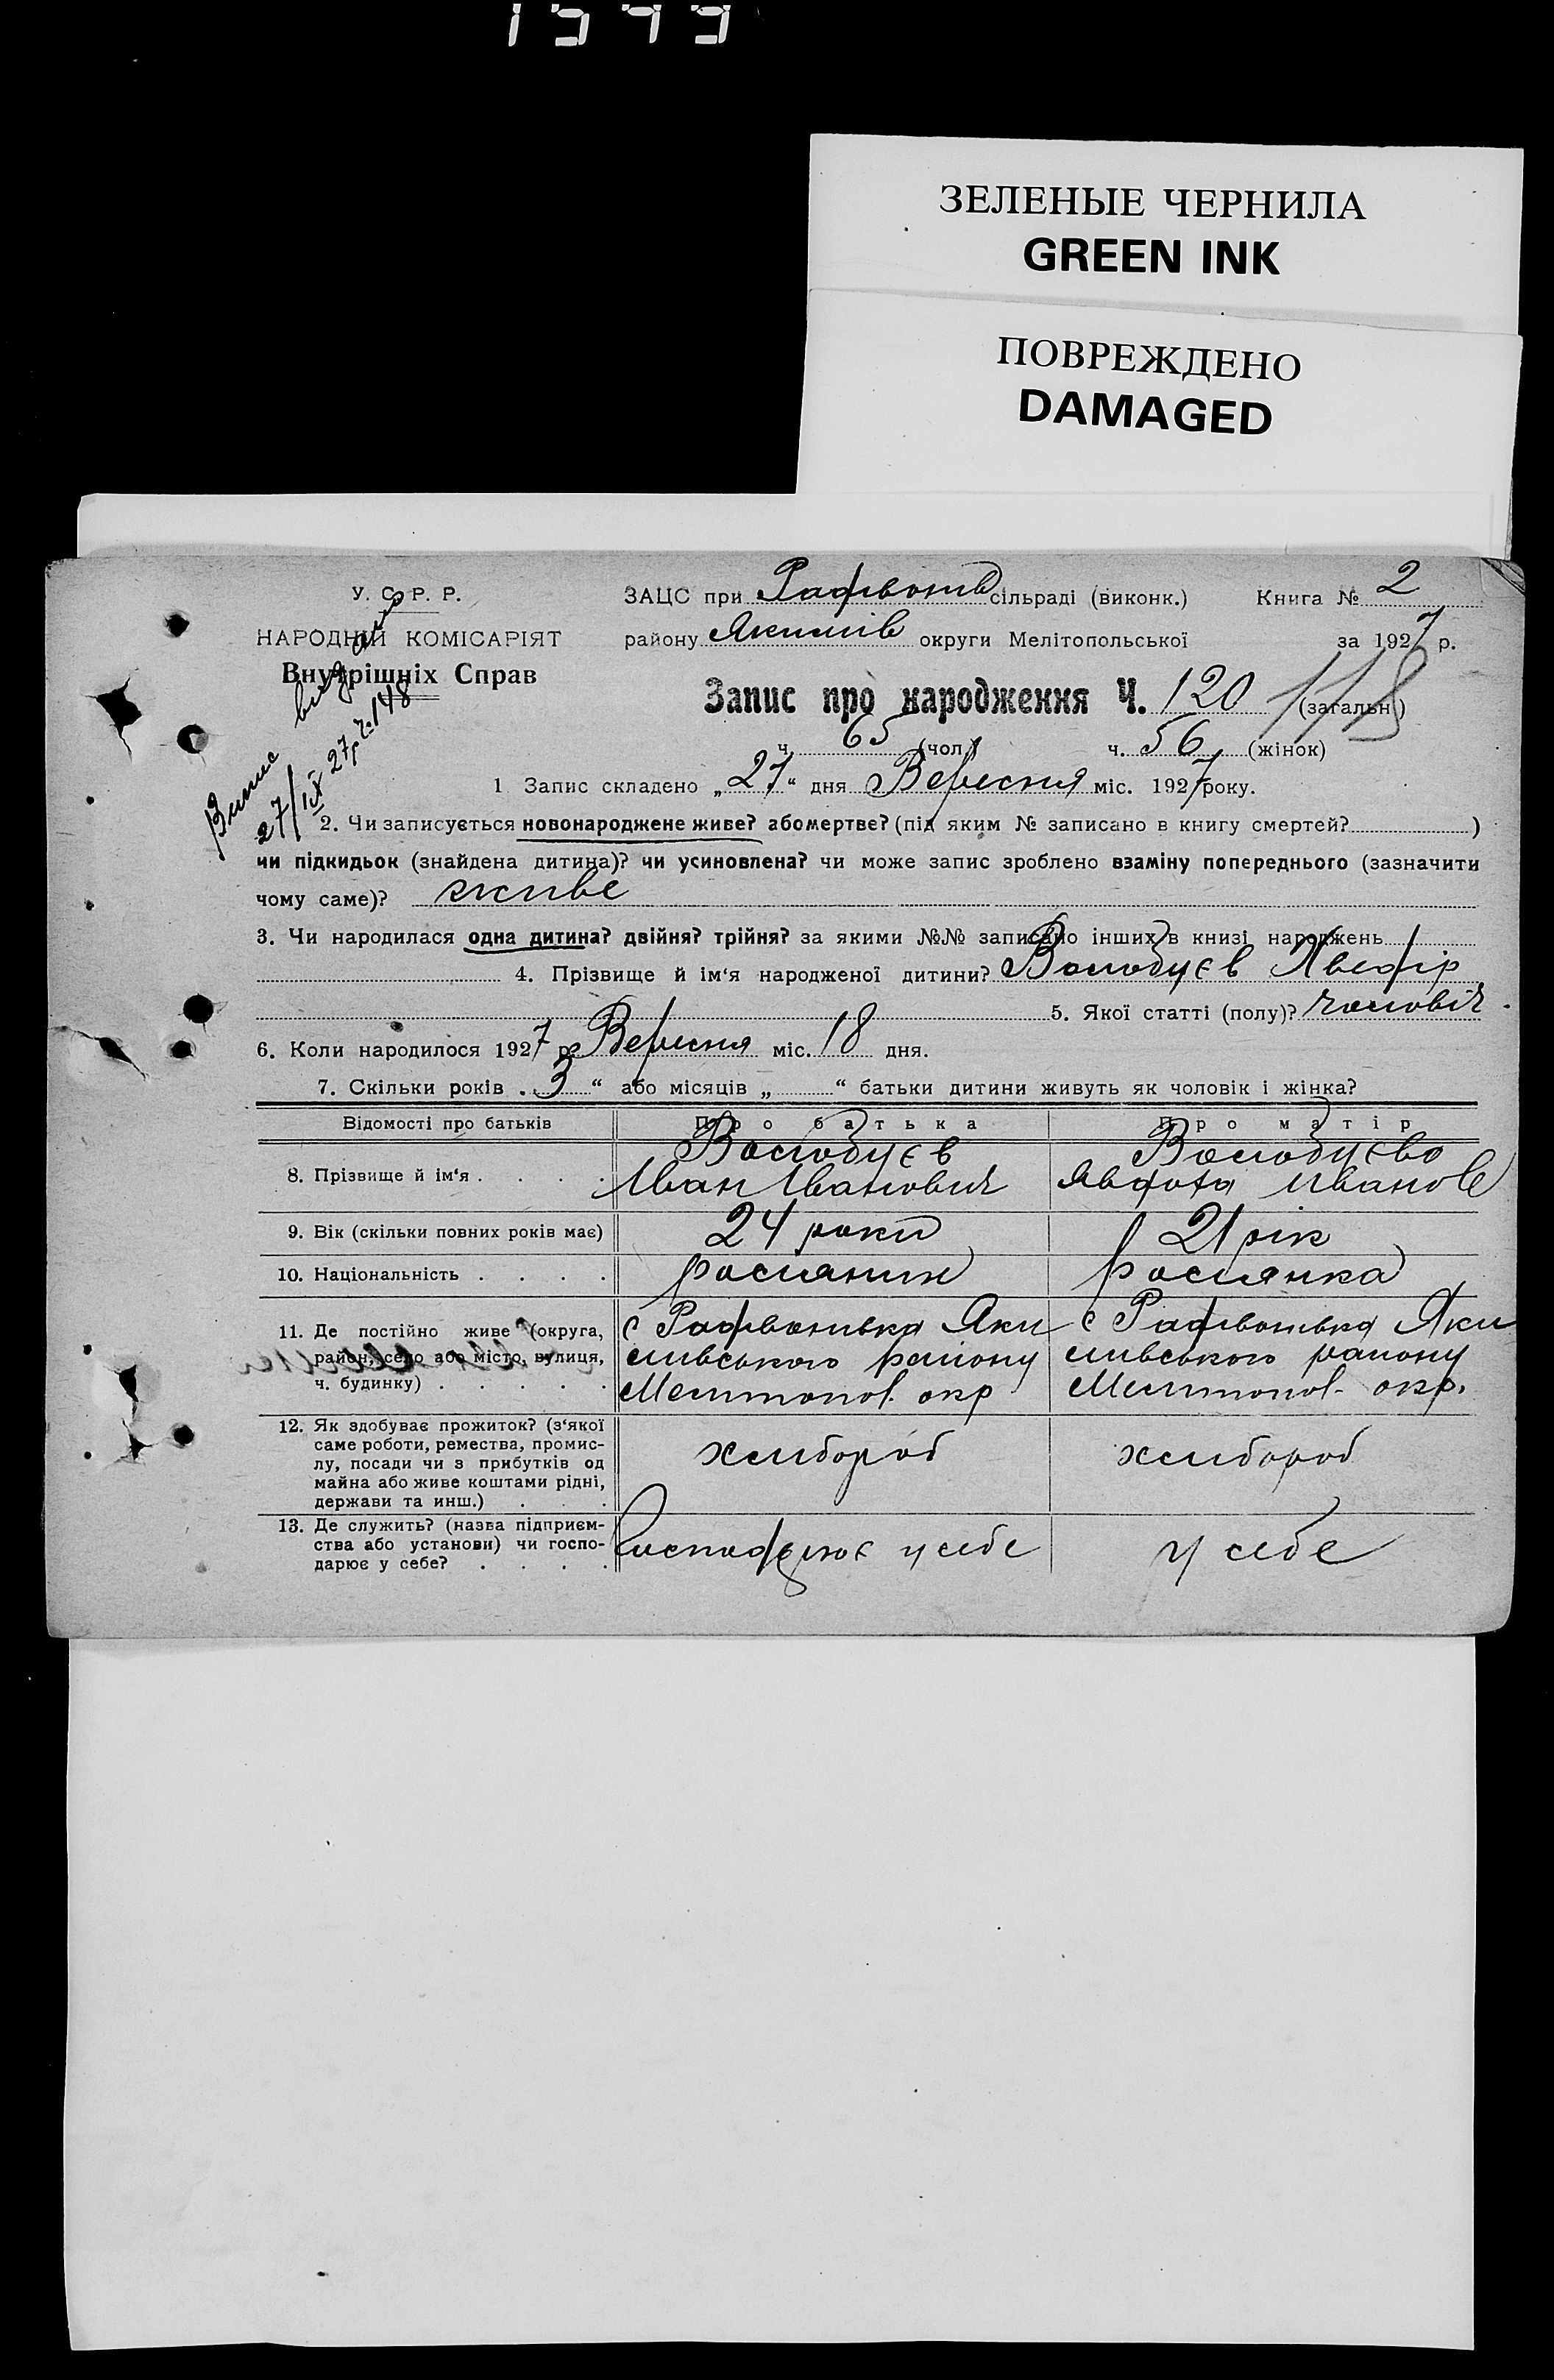 1549
ЗЕЛЕНЫЕ ЧЕРНИЛА
GREEN INK
ПОВРЕЖДЕНО
DAMAGED
У. С. Р. Р.
НАРОДНІЙ КОМІСАРІЯТ
Внутрішніх Справ
ЗАЦС при Радивонів сільраді (виконк.) Книга № 2
району Якимів округи Мелітопольської за 1927 р.
Запис про народження Ч. 120 118 (загальн)
ч. 65 (чол.) ч. 56 (жінок)
Випис видано
27/IX 27 р. ч. 148
1 Запис складено „27“ дня Вересня міс. 1927 року.
2. Чи записується новонароджене живе? або мертве? (під яким № записано в книгу смертей? )
чи підкидьок (знайдена дитина)? чи усиновлена? чи може запис зроблено взаміну попереднього (зазначити
чому саме)? живе
3. Чи народилася одна дитина? двійня? трійня? за якими №№ записано інших в книзі народжень
4. Прізвище й ім‘я народженої дитини? Володуєв Хведір
5. Якої статті (полу)? чоловіч
6. Коли народилося 1927 р. Вересня міс. 18 дня.
7. Скільки років „3“ або місяців „ “ батьки дитини живуть як чоловік і жінка?
Відомості про батьків Про батька Про матір
8. Прізвище й ім‘я . . . . Володуєв Иван Иванович Володуєва Явдоха Иванов
9. Вік (скільки повних років має) 24 роки 21 рік
10. Національність . . . . росиянин росиянка
11. Де постійно живе (округа, с Радивонивка Яки с Радивонивка Яки
район, село або місто, вулиця, мивського району мивського району
ч. будинку) . . . . . Мелитопол. окр Мелитопол. окр.
12. Як здобуває прожиток? (з‘якої
саме роботи, ремества, промис-
лу, посади чи з прибутків од хлибороб хлибороб
майна або живе коштами рідні,
держави та инш.) . . .
13. Де служить? (назва підприєм-
ства або установи) чи госпо- Господарює у себе у себе
дарює у себе? . . . .